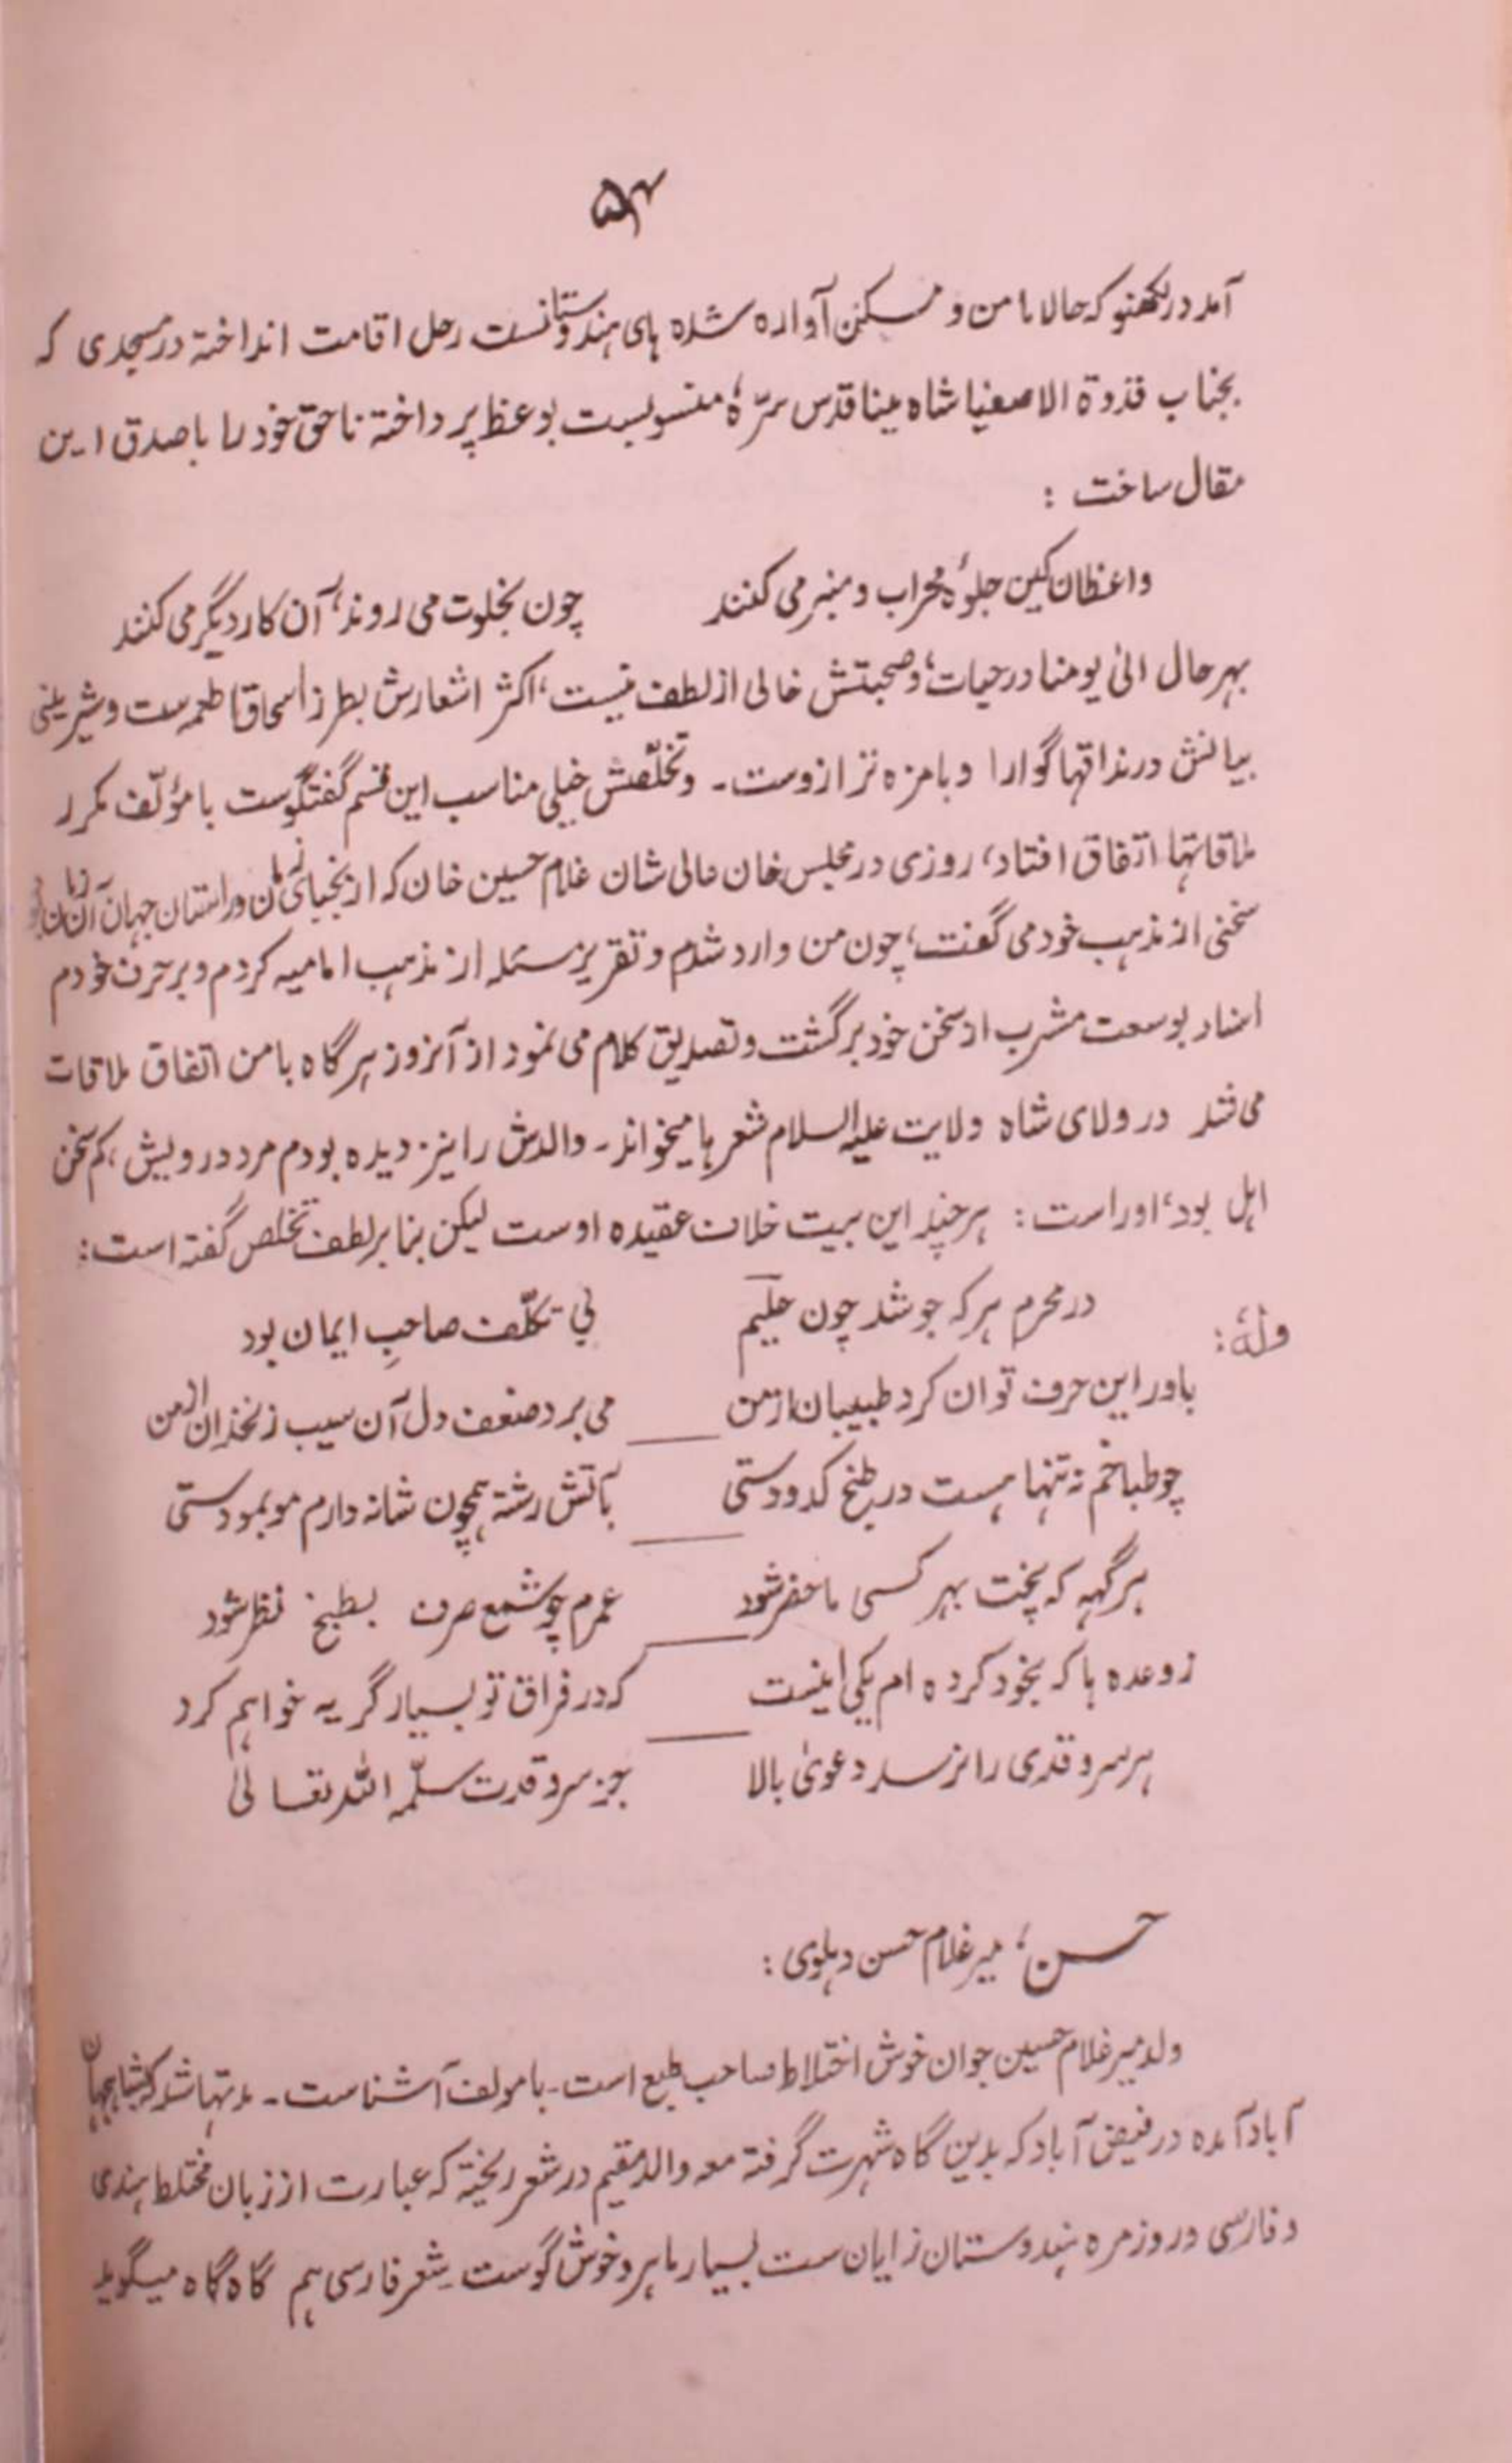 ۵۴
آمد در لکھنو که حالا مامن و مسکن آواره شده های هندوستانست رحل اقامت انداخته در مسجدی که
بجناب قدوة الاصفیا شاه مینا قدس سرّهٗ منسوبست بوعظ پرداخته ناحق خود را با صدق این
مقال ساخت :
واعظان کین جلوۂ محراب و منبر می کنند چون بخلوت می روند، آن کار دیگر می کنند
بهر حال الیٰ یومنا در حیات، و صحبتش خالی از لطف نیست، اکثر اشعارش بطرز اسحاق اطعمه ست و شیرینی
بیانش در مذاقها گوارا و بامزه تر ازوست ـ و تخلّصش خیلی مناسب این قسم گفتگوست با مؤلّف مکرر
ملاقاتها اتفاق افتاد، روزی در مجلس خان عالی شان غلام حسین خان که از نجبای زمان و راستان جهان آن
سخنی از مذهب خود می گفت، چون من وارد شدم و تقریر مسئله از مذهب امامیه کردم و بر حرف خودم
اسناد بوسعت مشرب از سخن خود برگشت و تصدیق کلام می نمود از آنروز هر گاه با من اتفاق ملاقات
می شد در ولای شاه ولایت علیه السلام شعر ها میخواند ـ والدش را نیز دیده بودم مرد درویش، کم سخن
اهل بود، او راست : هر چند این بیت خلاف عقیده اوست لیکن بنابر لطف تخلص گفته است :
در محرم هر که جوشد چون حلیم بی تکلّف صاحبِ ایمان بود
ولهٗ :
باور این حرف توان کرد طبیبان از من می برد ضعف دل آن سیب زنخدان از من
چو طباخم نه تنها هست در طبخ کدو دستی بآتش رشته همچون شانه دارم مو بمو دستی
هر گهه که پخت بهر کسی ماحضر شود عمرم چو شمع صرف بطبخ نظر شود
ز وعده ها که بخود کرده ام یکی اینست که در فراق تو بسیار گریه خواهم کرد
هر سرو قدی را نرسد دعویٰ بالا جز سرو قدت سلّمه الله تعالیٰ
حسن، میر غلام حسن دهلوی :
ولد میر غلام حسین جوان خوش اختلاط صاحب طبع است ـ با مولف آشناست ـ مدتها شد که شاهجهان
آباد آمده در فیض آباد که بدین گاه شهرت گرفته معه والد مقیم در شعر ریخته که عبارت از زبان مختلط هندی
و فارسی و روزمره هندوستان زایان ست بسیار ماهر و خوش گوست شعر فارسی هم گاه گاه میگوید